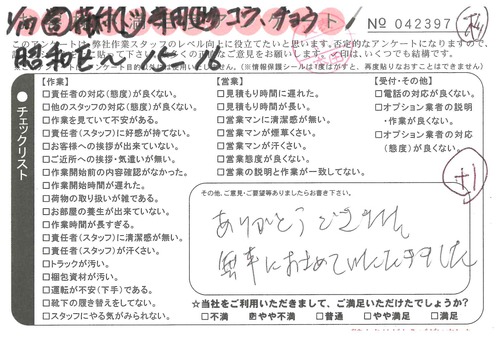 No 042397
このアンケートは、弊社作業スタッフのレベル向上に役立てたいと思います。否定的なアンケートになりますので、
(※情報保護シールは1度はがすと、再度貼りなおすことはできません)
チェックリスト
【作業】
□責任者の対応(態度)が良くない。
□他のスタッフの対応(態度)が良くない。
□作業を見ていて不安がある。
□責任者(スタッフ)に好感が持てない。
□お客様への挨拶が出来ていない。
□ご近所への挨拶・気遣いが無い。
□作業開始前の内容確認がなかった。
□作業開始時間が遅れた。
□荷物の取り扱いが雑である。
□お部屋の養生が出来ていない。
□作業時間が長すぎる。
□責任者(スタッフ)に清潔感が無い。
□責任者(スタッフ)が汗くさい。
□トラックが汚い。
□梱包資材が汚い。
□運転が不安(下手)である。
□靴下の履き替えをしてない。
□スタッフにやる気がみられない。
【営業】
□見積もり時間に遅れた。
□見積もり時間が長い。
□営業マンに清潔感が無い。
□営業マンが煙草くさい。
□営業マンが汗くさい。
□営業態度が良くない。
□営業の説明と作業が一致してない。
【受付・その他】
□電話の対応が良くない。
□オプション業者の説明
・作業が良くない。
□オプション業者の対応
(態度)が良くない。
その他、ご意見・ご要望等ありましたらお書き下さい。
ありがとうございました
無事におさめていただきました
☆当社をご利用いただきまして、ご満足いただけたでしょうか?
□不満 □やや不満 □普通 □やや満足 □満足